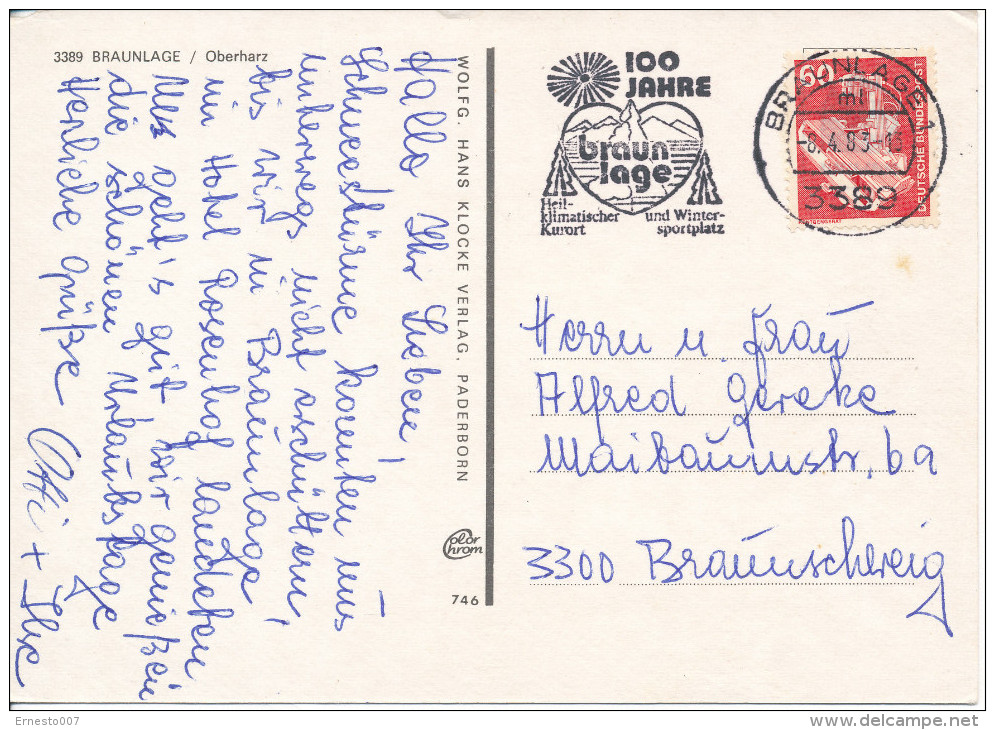 3389 BRAUNLAGE / Oberharz
Hallo Ihr Lieben!
Schneestürme konnten uns
unterwegs nicht erschüttern,
bis wir in Braunlage
im Hotel Rosenhof landeten
Uns geht's gut wir genießen
die schönen Urlaubstage
Herzliche Grüße
Otti + Ilse
WOLFG. HANS KLOCKE VERLAG, PADERBORN
Color
Chrom
746
100
JAHRE
braun
lage
Heil-
klimatischer
Kurort
und Winter-
sportplatz
60
DEUTSCHE BUNDESPOST
BRAUNLAGE 1
ml
-8.4.83-16
3389
Herrn u. Frau
Alfred Gereke
Maibaumstr. 69
3300 Braunschweig
Ernesto007
delcampe.net